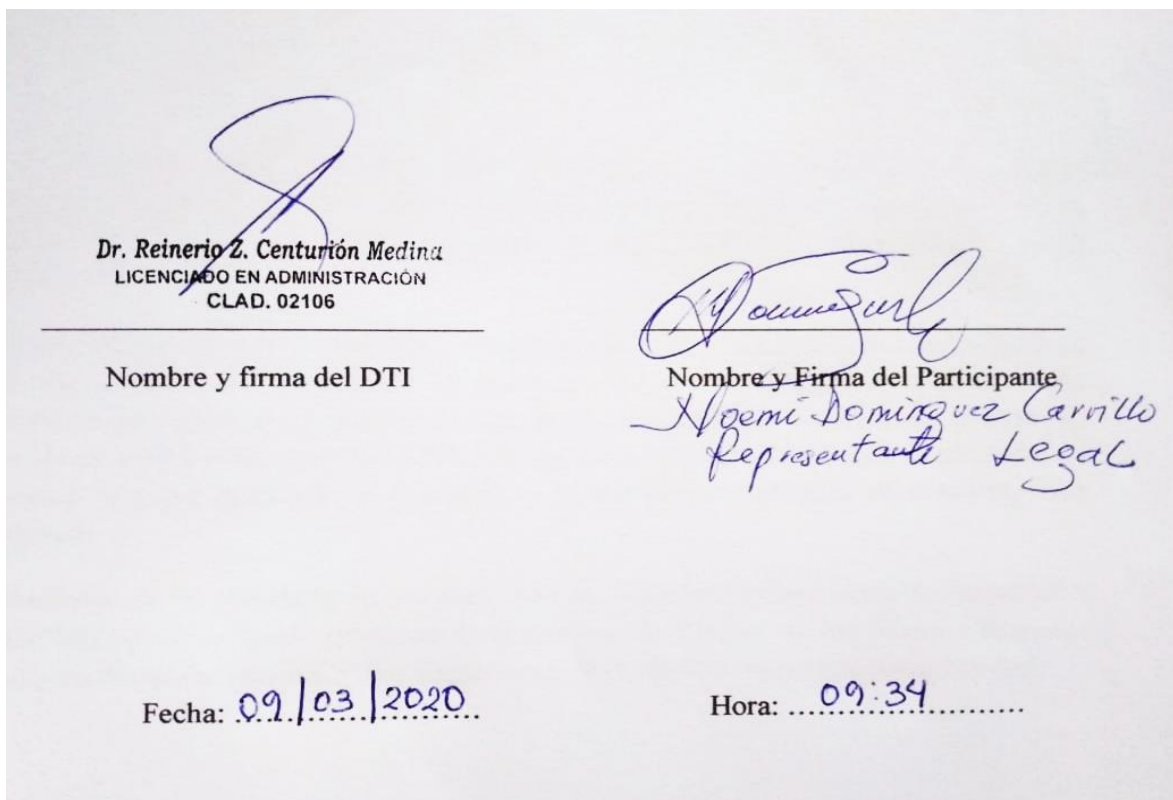 Dr. Reinerio Z. Centurión Medina
LICENCIADO EN ADMINISTRACIÓN
CLAD. 02106
Nombre y firma del DTI
Nombre y Firma del Participante
Noemi Dominguez Carrillo
Representante Legal
Fecha: 09/03/2020
Hora: 09:34